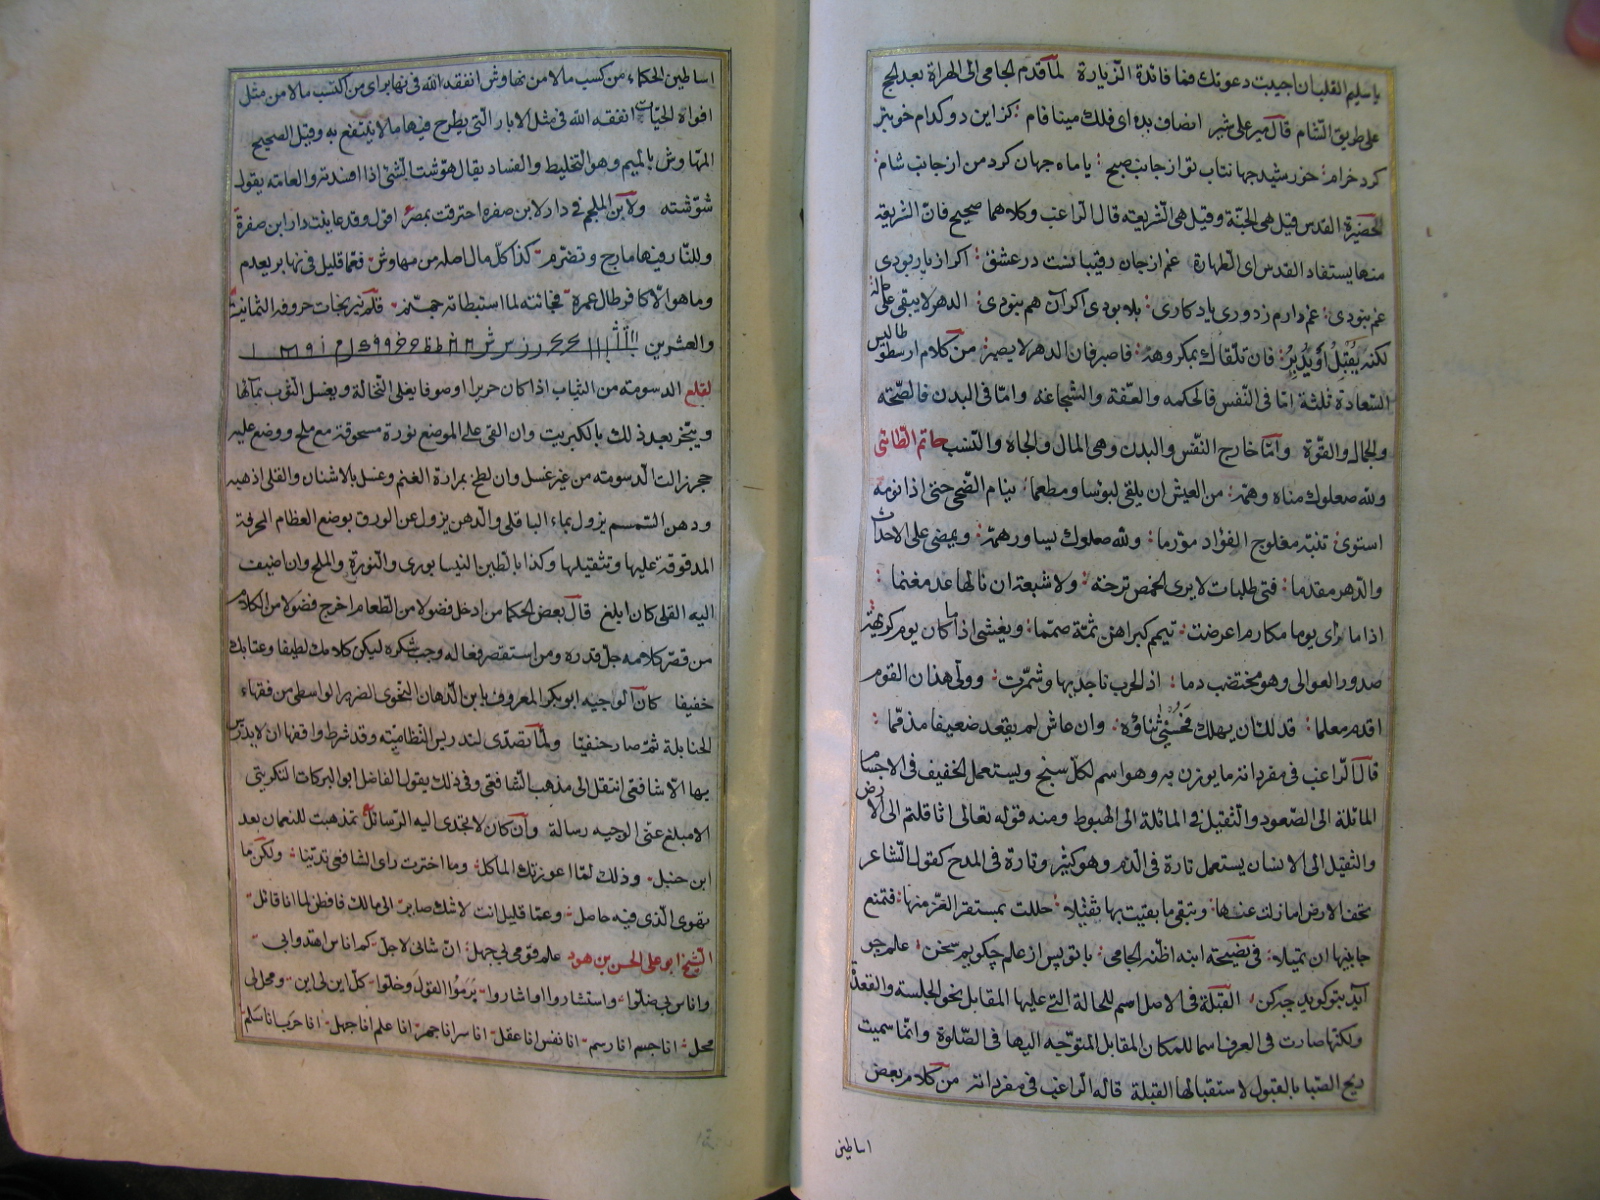 يا سليم القلب ان اجيبت دعوتك فما فائدة الزيارة لما قدم الجامي الى الهراة بعد الحج
على طريق الشام قال مير على شير انصاف بده اى فلك مينا فام كز اين دو كدام خوبتر
كرد خرام خورشيد جهانتاب تو از جانب صبح يا ماه جهان كرد من از جانب شام
الحضيرة القدس قيل هى الجنة وقيل هى الشريعة قال الراغب وكلاهما صحيح فان الشريعة
منها يستفاد القدس اى الطهارة غم از جان رقيبانت در عشق اكر از يار بودى
غم بنودى غم دارم ز دورى يادكارى بلا بودى اكر آن هم بنودى الدهر لا يبقى على حالة
لكنه يقبل او يدبر فان تلقاك بمكروهه فاصبر فان الدهر لا يصبر من كلام ارسطوطاليس
السعادة ثلثة اما فى النفس فالحكمه والعفة والشجاعة واما فى البدن فالصحة
والجمال والقوة واما خارج النفس والبدن وهى المال والجاه والنسب حاتم الطائى
ولله صعلوك مناه وهمه من العيش ان يلقى لبوسا ومطعما ينام الضحى حتى اذا نومه
استوى تنبه مفلوج الفؤاد مورما ولله صعلوك يساور همه ويمضى على الاحداث
والدهر مقدما فتى طلبات لا يرى الخمص ترحة ولا شبعة ان نالها عد مغنما
اذا ما راى يوما مكارم اعرضت تيمم كبراهن ثمة صمما ويغشى اذا ما كان يوم كريهة
صدور العوالى وهو مختضب دما اذ الحرب ناجذيها وشمرت وولى هذان القوم
اقدم معلما فذلك ان يهلك فحسنى ثناؤه وان عاش لم يقعد ضعيفا مذمما
قال الراغب فى مفرداته ما يوزن به وهو اسم لكل سنج ويستعمل الخفيف فى الاجسام
المائلة الى الصعود والثقيل فى المائلة الى الهبوط ومنه قوله تعالى اثاقلتم الى الارض
والثقيل الى الانسان يستعمل تارة فى الذم وهو كثير وتارة فى المدح كقول الشاعر
تخف الارض اما زلت عنها وتبقى ما بقيت بها ثقيلا حللت بمستقر العز منها فتمنع
جانبيها ان تميلا فى نصيحة ابنه اظنه الجامى با تو پس از علم چكويم سخن علم چو
آيد بتو كويد چه كن القبلة فى الاصل اسم للحالة التى عليها المقابل نحو الجلسة والقعدة
ولكنها صارت فى العرف اسما للمكان المقابل المتوجه اليها فى الصلوة وانما سميت
ريح الصبا بالقبول لاستقبالها القبلة قاله الراغب فى مفرداته من كلام بعض
اساطين
اساطين الحكماء من كسب مالا من نهاوش انفقه الله فى نهابر اى من اكتسب مالا من مثل
افواه الحيات انفقه الله فى مثل الابار التى يطرح فيها ما لا ينتفع به وقيل الصحيح
المهاوش بالميم وهو التخليط والفساد يقال هوشت الشئ اذا افسدته والعامة يقول
شوشته ولابن الملجم فى دار لابن صفره احترقت بمصر اقول وقد عاينت دار ابن صفرة
وللنار فيها مارج وتضرم كذا كل مال اصله من مهاوش فعما قليل فى نهابر يعدم
وما هو الا كافر طال عمره فجائته لما استبطاته جهنم قلم نيرنجات حروفه الثمانية
والعشرين
لقلع الدسومة من الثياب اذا كان حريرا او صوفا يغلى النخالة ويغسل الثوب بمائها
ويبخر بعد ذلك بالكبريت وان القى على الموضع نورة مسحوقة مع ملح ووضع عليه
حجر زالت الدسومة من غير غسل وان لطخ بمرارة الغنم وغسل بالاشنان والقلى اذهبه
ودهن السمسم يزول بماء الباقلى والدهن يزول عن الورق بوضع العظام المحرقة
المدقوقة عليها وتثقيلها وكذا بالطين النيسابورى والنورة والملح وان اضيف
اليه القلى كان ابلغ قال بعض الحكما من ادخل فضولا من الطعام اخرج فضولا من الكلام
من قصر كلامه جل قدره ومن استقصر فعاله وجب شكره ليكن كلامك لطيفا وعتابك
خفيفا كان الوجيه ابو بكر المعروف بابن الدهان النحوى الضرير الواسطى من فقهاء
الحنابلة ثم صار حنفيا ولما تصدى لتدريس النظامية وقد شرط واقفها ان لا يدرس
بها الا شافعى انتقل الى مذهب الشافعى وفى ذلك يقول الفاضل ابو البركات التكريتى
الا مبلغ عنى الوجيه رسالة وان كان لا تجدى اليه الرسائل تمذهبت للنعمان بعد
ابن حنبل وذلك لما اعوزتك الماكل وما اخترت راى الشافعى تدينا ولكن ما
تهوى الذى فيه حاصل وعما قليل انت لا شك صاير الى مالك فافطن لما انا قائل
الشيخ ابو على الحسن بن هود علم قومى بى جهل ان شانى لاجل كم اناس اهتدوا بى
واناس بى ضلوا واستشاروا واشاروا يرموا القول وخلوا كل اين لى اين ومحل بى
محل انا جسم انا رسم انا نفس انا عقل انا سر انا جهر انا علم انا جهل انا حرب انا سلم